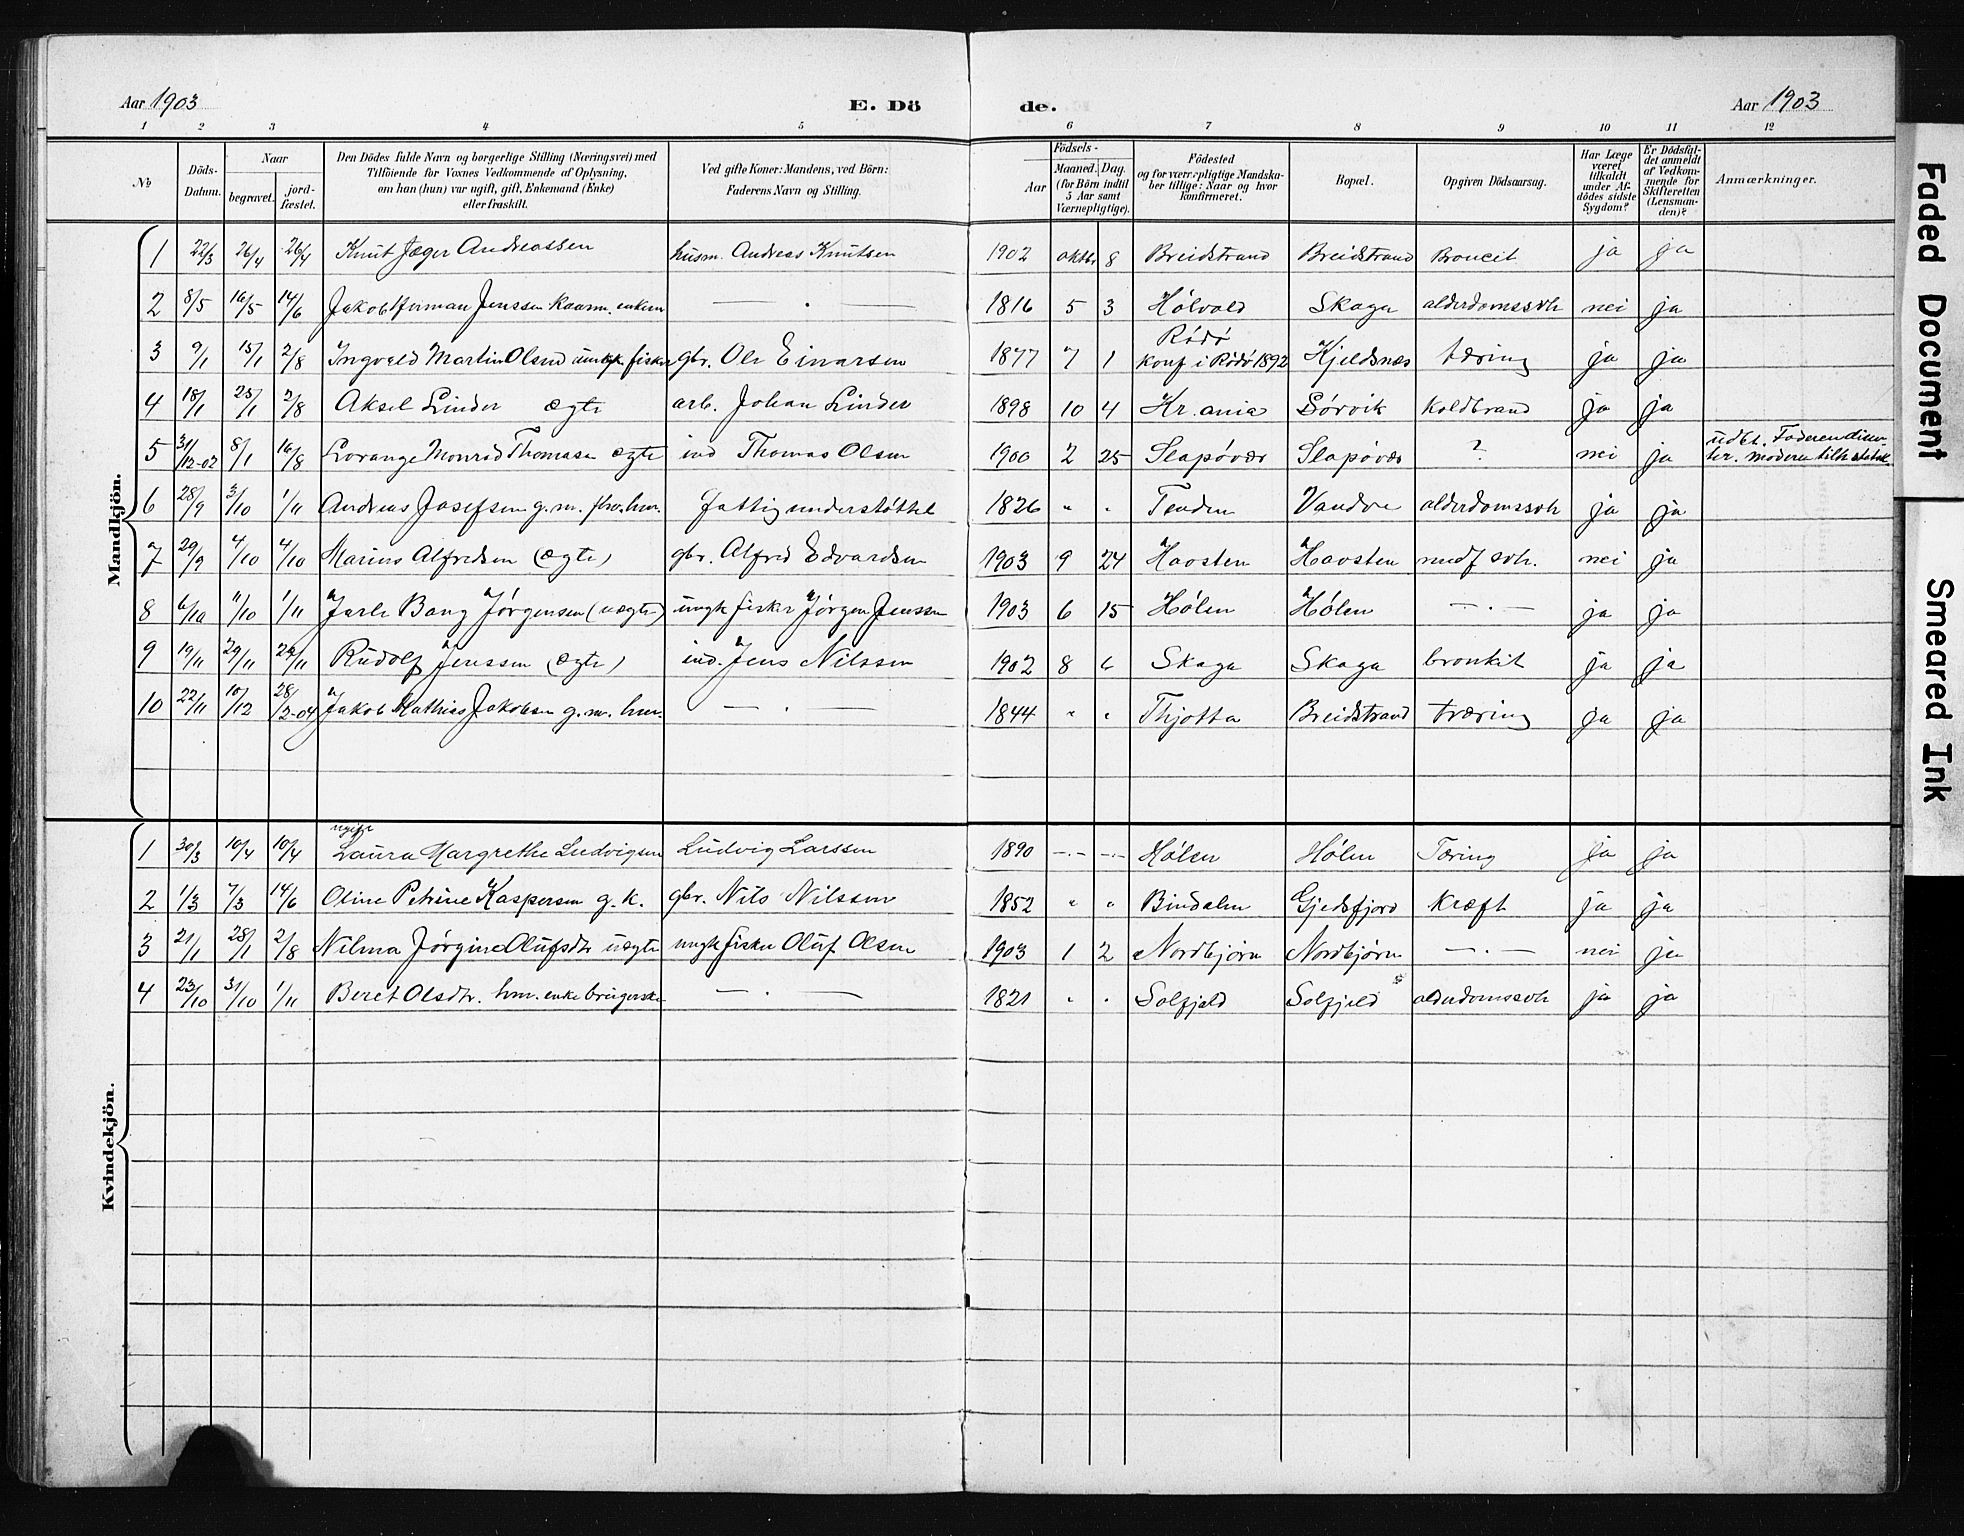 Aar 1903 E. Dö de. Aar 1903
1 2 3 4 5 6 7 8 9 10 11 12
No
Döds-Datum.
Naar
begravet.
jord-fæstet.
Den Dödes fulde Navn og borgerlige Stilling (Næringsvei) med
Tilföiende for Voxnes Vedkommende af Oplysning,
om han (hun) var ugift, gift, Enkemand (Enke)
eller fraskilt.
Ved gifte Koner: Mandens, ved Börn:
Faderens Navn og Stilling.
Aar
Födsels-
Maaned. Dag.
(for Börn indtil
5 Aar samt
Værnepligtige).
Födested
og for værnepligtige Mandska-
ber tillige: Naar og hvor
konfirmeret.
Bopæl.
Opgiven Dödsaarsag.
Har Læge
været
tilkaldt
under Af-
dödes sidste
Sygdom?
Er Dödsfal-
det anmeldt
af Vedkom-
mende for
Skifteretten
(Lensman-
den)?
Anmærkninger.
Mandkjön.
1 22/3 26/4 26/4 Knut Jæger Andreassen husm. Andreas Knutsen 1902 oktbr 8 Breidstrand Breidstrand Broncit ja ja
2 8/5 16/5 14/6 Jakob Jenssen enkem — . — 1816 5 3 Hølvold Skaga alderdomssvh nei ja
3 9/1 15/1 2/8 Ingvald Martin Olsen ungk. fisker gbr. Ole Einarsen 1877 7 1 Rødø konf i Rødø 1892 Kjeldsnæs tæring ja ja
4 18/1 25/1 2/8 Aksel Linder ægte arb. Johan Linder 1898 10 4 Kr.ania Sørvik Koldbrand ja ja
5 31/12-02 8/1 16/8 Lorange Monrad Thomasn ægte ind Thomas Olsen 1900 2 25 Slapøvær Slapøvær ? nei ja udbt. Faderen dissenter. moderen tilh statsk.
6 28/9 3/10 1/11 Andreas Josefsen g.m. hm. fattigunderstøttet 1826 " " Tenden Vandve alderdomssvh ja ja
7 29/9 4/10 4/10 Marius Alfredsen (ægte) gbr. Alfred Edvardsen 1903 9 24 Haosten Haosten medf svh. nei ja
8 6/10 11/10 1/11 Jarle Bang Jørgensen (uægte) ungk fisker Jørgen Jenssen 1903 6 15 Hølen Hølen — . — ja ja
9 19/11 29/11 29/11 Rudolf Jenssen (ægte) ind. Jens Nilssen 1902 8 6 Skaga Skaga bronkit ja ja
10 22/11 10/12 28/2-04 Jakob Mathias Jakobsen g.m. hm. — . — 1844 " " Thjøtta Breidstrand træring ja ja
Kvindekjön.
1 30/3 10/4 10/4 ugift Laura Margrethe Ludvigsen Ludvig Larssen 1890 —.— —.— Hølen Hølen Tæring ja ja
2 1/3 7/3 14/6 Oline Petrine Kaspersen g. k. gbr. Nils Nilssen 1852 " " Bindalen Gjedsfjord Kræft ja ja
3 21/1 28/1 2/8 Nilma Jørgine Olufsdtr uægte ungk fisker Oluf Olsen 1903 1 2 Nordbjørn Nordbjørn — . — nei ja
4 23/10 31/10 1/11 Beret Olsdtr. hm. enke brugerske — . — 1821 " " Solfjeld Solfjeld alderdomssvh ja ja
Faded Document
Smeared Ink